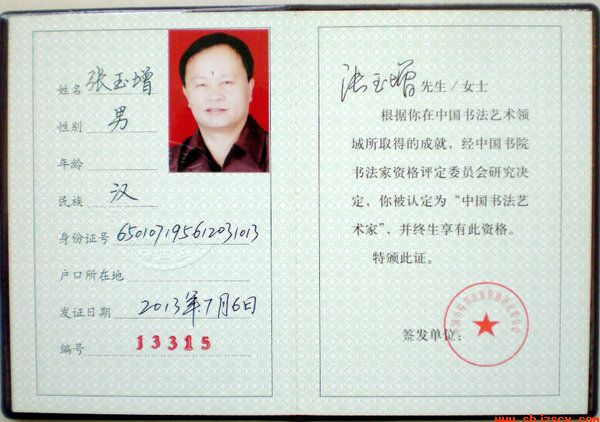 姓名 张玉增
性别 男
年龄
民族 汉
身份证号 650107195612031013
户口所在地
发证日期 2013年7月6日
编号 13315
张玉增 先生/女士
根据你在中国书法艺术领
域所取得的成就，经中国书院
书法家资格评定委员会研究决
定，你被认定为“中国书法艺
术家”，并终生享有此资格。
特颁此证。
签发单位：
中国书院书法家资格评定委员会